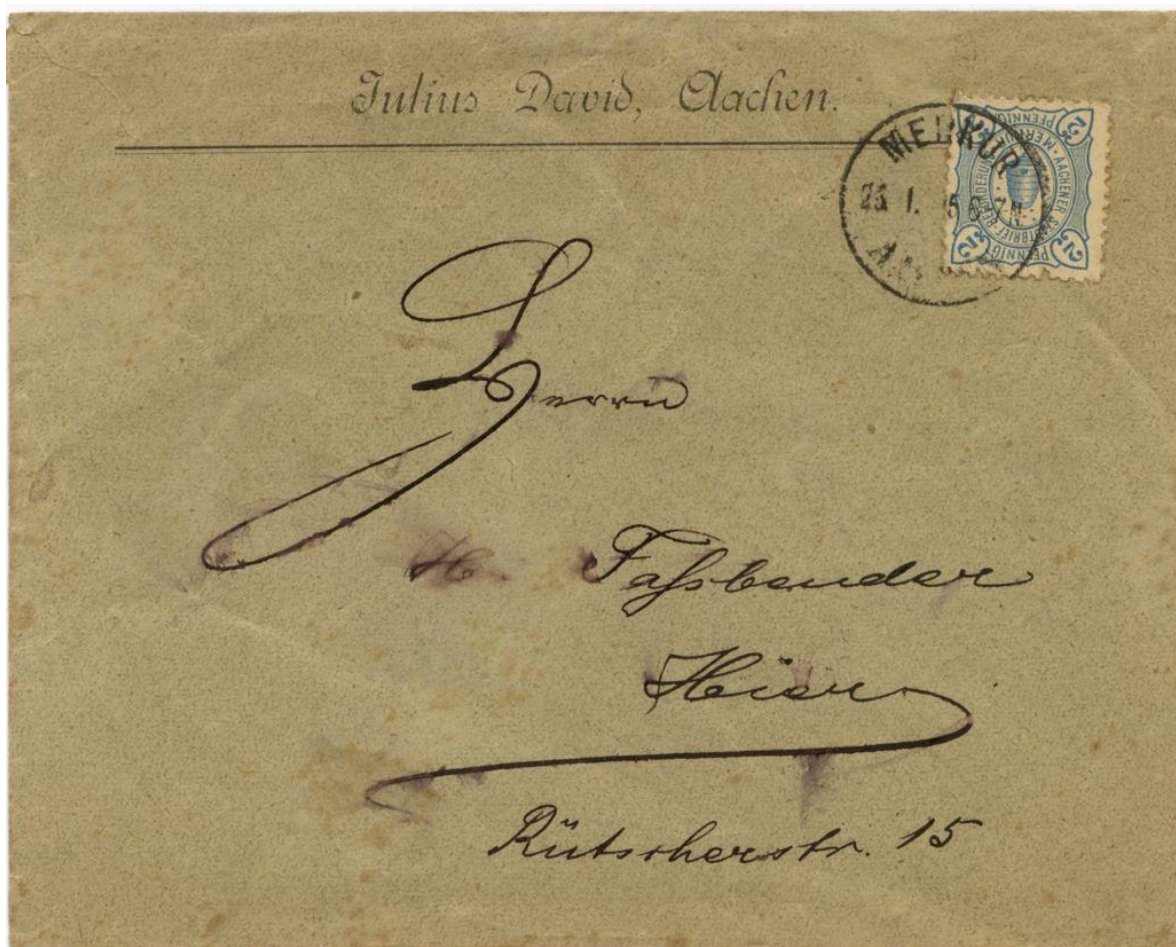 Julius David, Aachen.
MERKUR
1. 5 6-7 N
2½ PFENNIG
AACHENER STADTBRIEF-BEFÖRDERUNG • MERKUR •
2½ PFENNIG 2½
Herrn
H. Faſsbender
Hier
Rütscherstr. 15